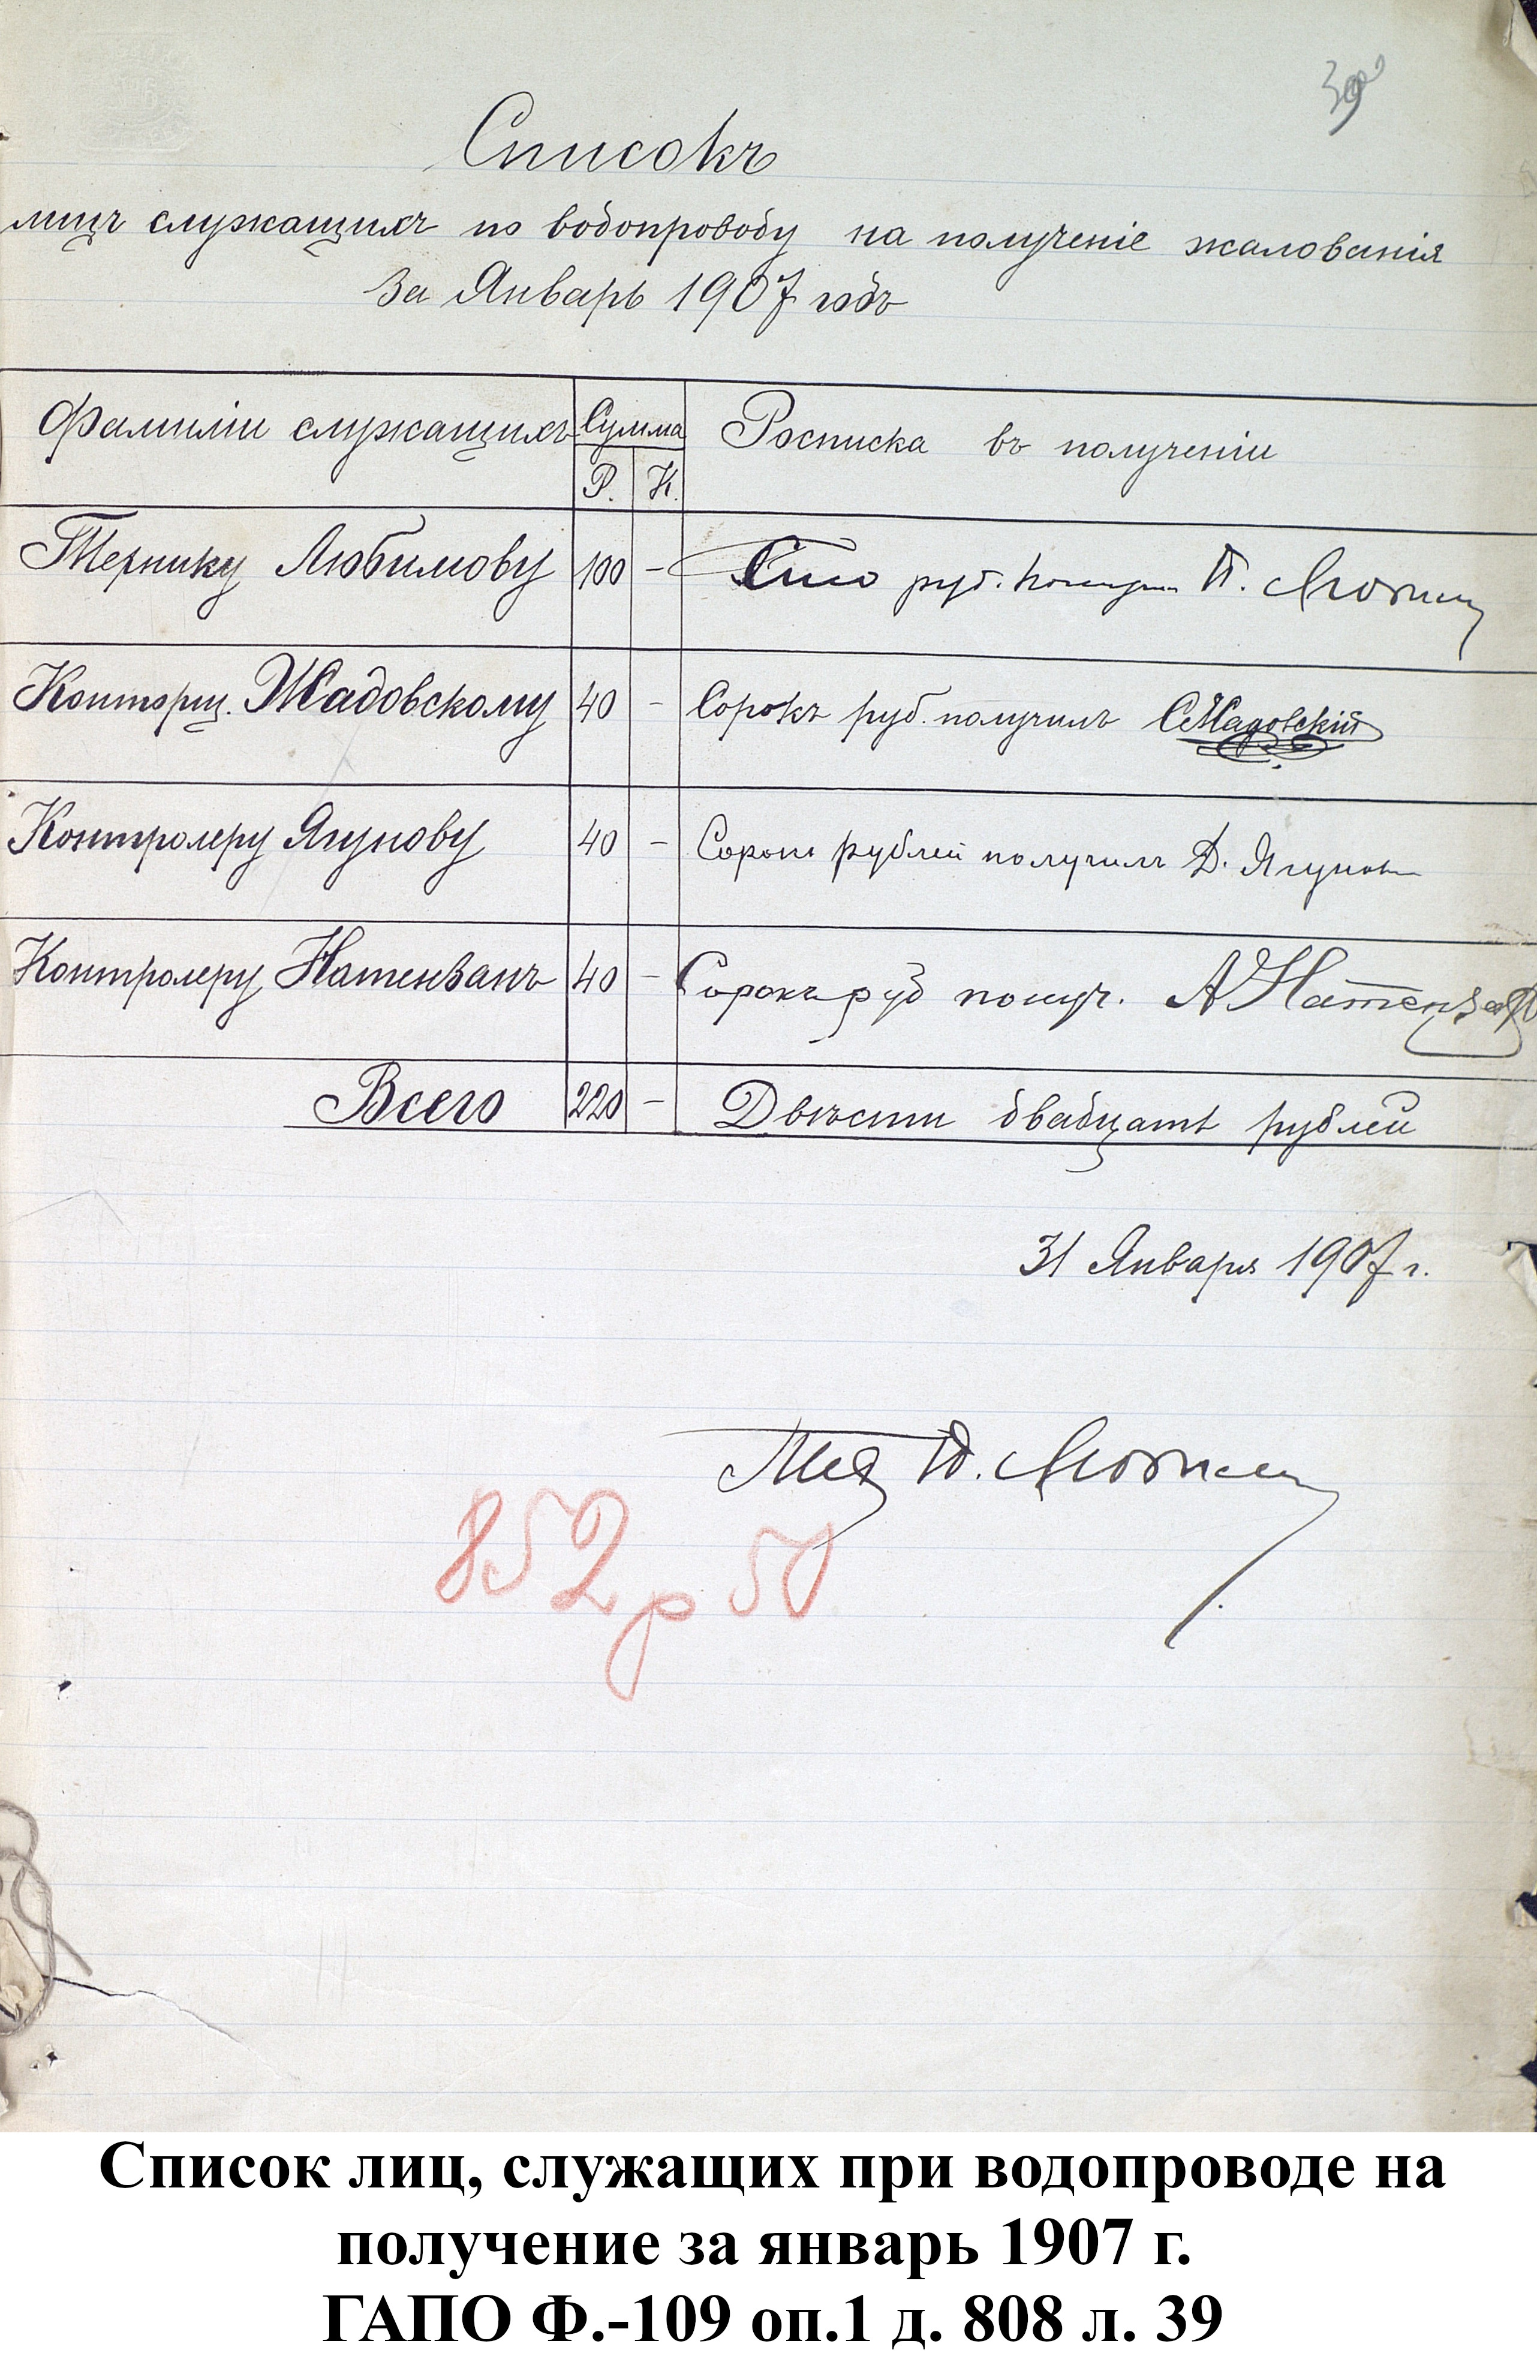 39
Списокъ
лицъ служащихъ по водопроводу на полученіе жалованія
за Январь 1907 годъ
Фамиліи служащихъ Сумма Росписка въ полученіи
Р. К.
Технику Любимову 100 — Сто руб. получил П. Любим
Конторщ. Жадовскому 40 — Сорокъ руб. получилъ СЖадовскій
Контролеру Ягунову 40 — Сорокъ рублей получилъ Д. Ягунов
Контролеру Натензанъ 40 — Сорокъ руб получ. А Натензон
Всего 220 — Двѣсти двадцать рублей
31 Января 1907 г.
Тех П. Любим
852 р 50
Список лиц, служащих при водопроводе на
получение за январь 1907 г.
ГАПО Ф.-109 оп.1 д. 808 л. 39